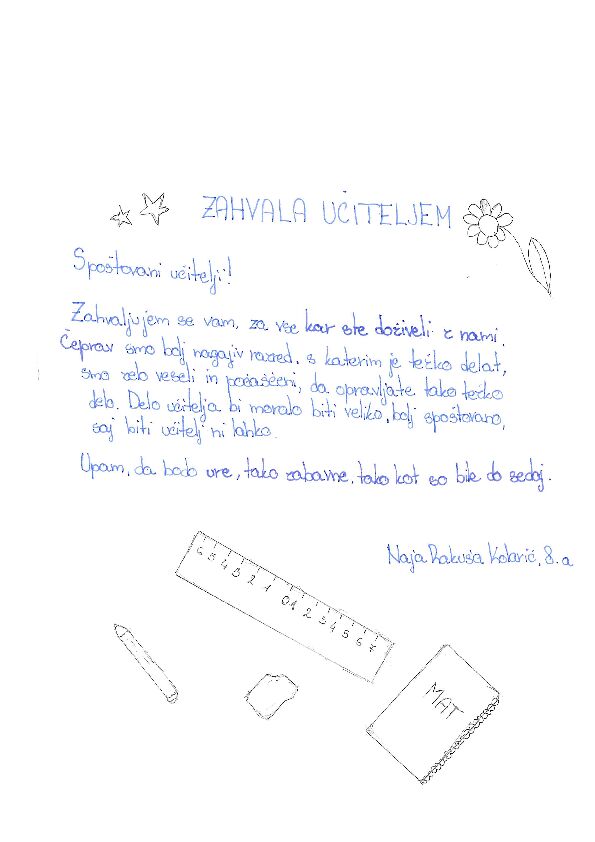 ZAHVALA UČITELJEM
Spoštovani učitelji!
Zahvaljujem se vam, za vse kar ste doživeli z nami.
Čeprav smo bolj nagajiv razred, s katerim je težko delat,
smo zelo veseli in počaščeni, da opravljate tako težko
delo. Delo učitelja bi moralo biti veliko, bolj spoštovano,
saj biti učitelj ni lahko.
Upam, da bodo ure, tako zabavne, tako kot so bile do sedaj.
Naja Rakuša Kolarič, 8. a
6 5 4 3 2 1 0 1 2 3 4 5 6 7
MAT